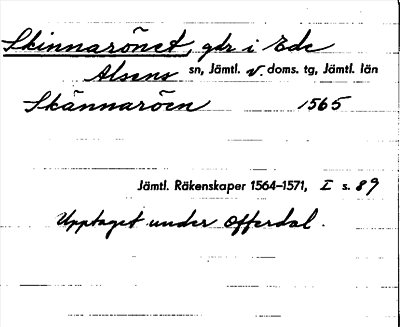 Skinnarönet, gdr i Ede
Alsens sn, Jämtl. v. doms. tg, Jämtl. län
Skännaröen 1565
Jämtl. Räkenskaper 1564–1571, I s. 89
Upptaget under Offerdal.